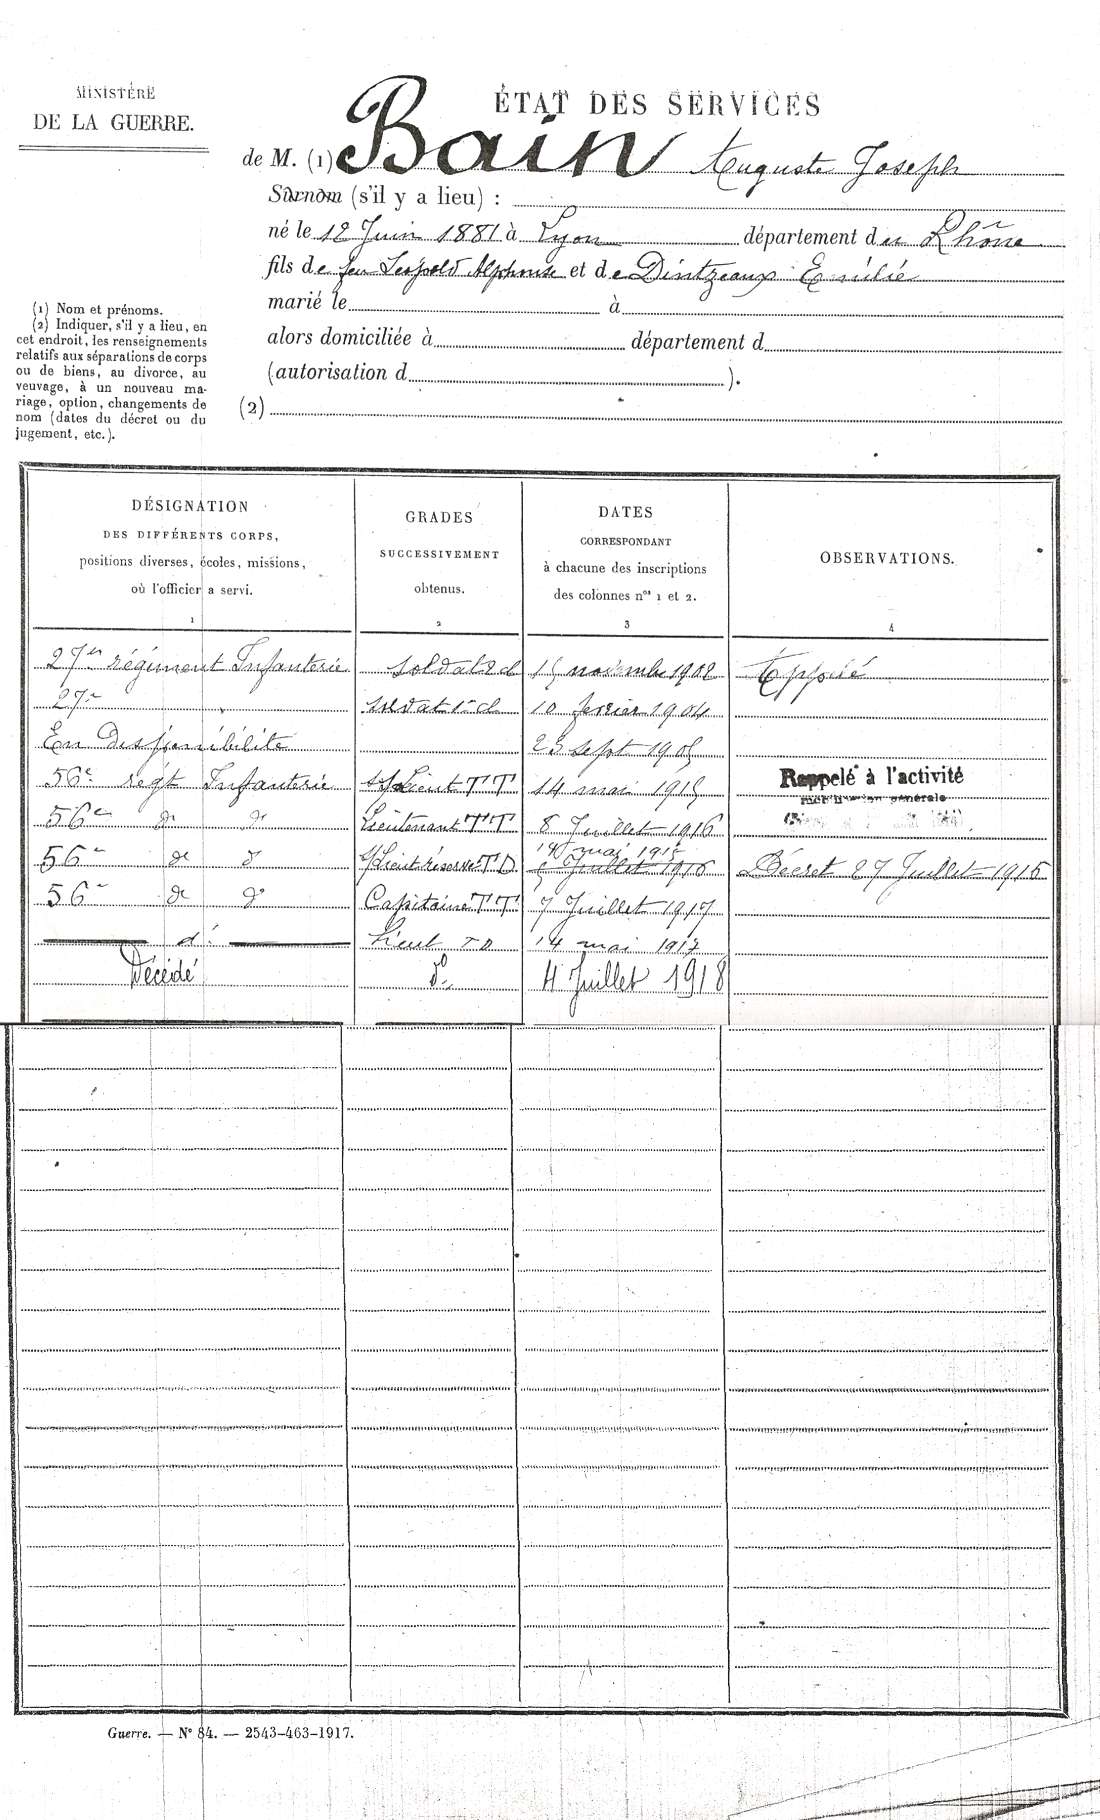 MINISTÉRE
DE LA GUERRE.
ÉTAT DES SERVICES
de M. (1) Bain Auguste Joseph
Surnom (s'il y a lieu) :
né le 12 Juin 1881 à Lyon département du Rhône
fils de feu Leopold Alphonse et de Dintzeaux Emilie
marié le à
alors domiciliée à département d
(autorisation d ).
(2)
(1) Nom et prénoms.
(2) Indiquer, s'il y a lieu, en
cet endroit, les renseignements
relatifs aux séparations de corps
ou de biens, au divorce, au
veuvage, à un nouveau ma-
riage, option, changements de
nom (dates du décret ou du
jugement, etc.).
DÉSIGNATION
DES DIFFÉRENTS CORPS,
positions diverses, écoles, missions,
où l'officier a servi.
1
GRADES
SUCCESSIVEMENT
obtenus.
2
DATES
CORRESPONDANT
à chacune des inscriptions
des colonnes nos 1 et 2.
3
OBSERVATIONS.
4
27er régiment Infanterie soldat 2 cl 15 novembre 1902 Appelé
27e soldat 1e cl 10 fevrier 1904
En Disponibilité 23 sept 1905
56e regt Infanterie s/Lieut TT 14 mai 1915 Rappelé à l'activité
générale
56e do do Lieutenant TT 8 Juillet 1916
14 mai 1915
56e do do s/Lieut réserve TD Juillet 1916 Décret 27 Juillet 1915
56e do do Capitaine TT 7 Juillet 1917
do Lieut TD 14 mai 1917
Décédé do 4 Juillet 1918
Guerre. — N° 84. — 2543-463-1917.